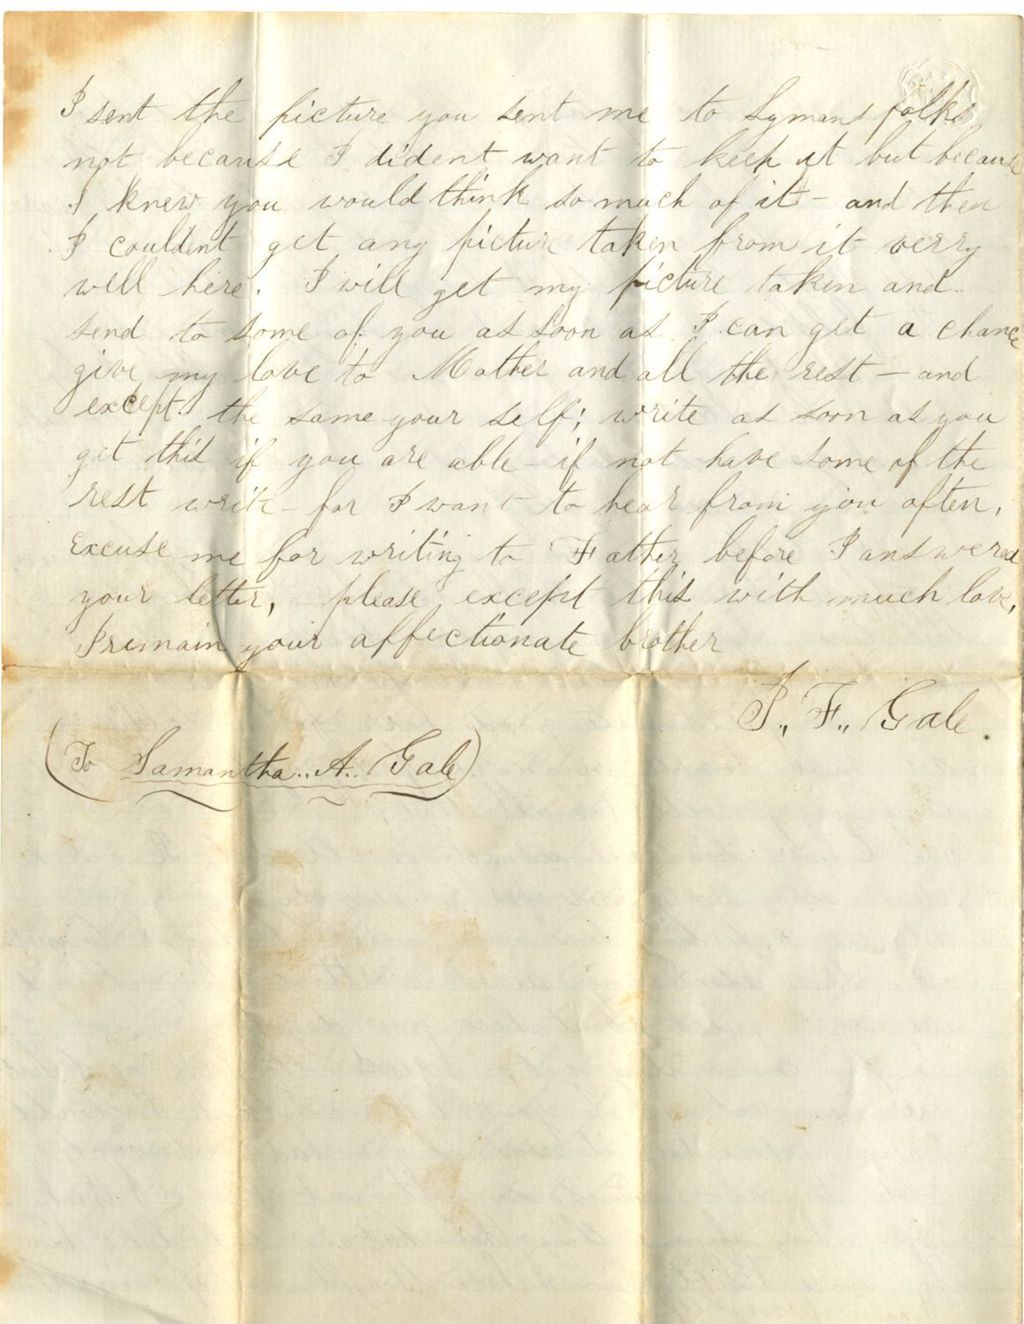 I sent the picture you sent me to Lymans folks
not because I dident want to keep it but because
I knew you would think so much of it - and then
I couldent get any picture taken from it verry
well here. I will get my picture taken and
send to some of you as soon as I can get a chance
give my love to Mother and all the rest - and
except the same your self; write as soon as you
get this if you are able - if not have some of the
rest write - for I want to hear from you often,
Excuse me for writing to Father before I answered
your letter, please except this with much love,
I remain your affectionate brother
I., F., Gale.
(To Samantha., A., Gale)